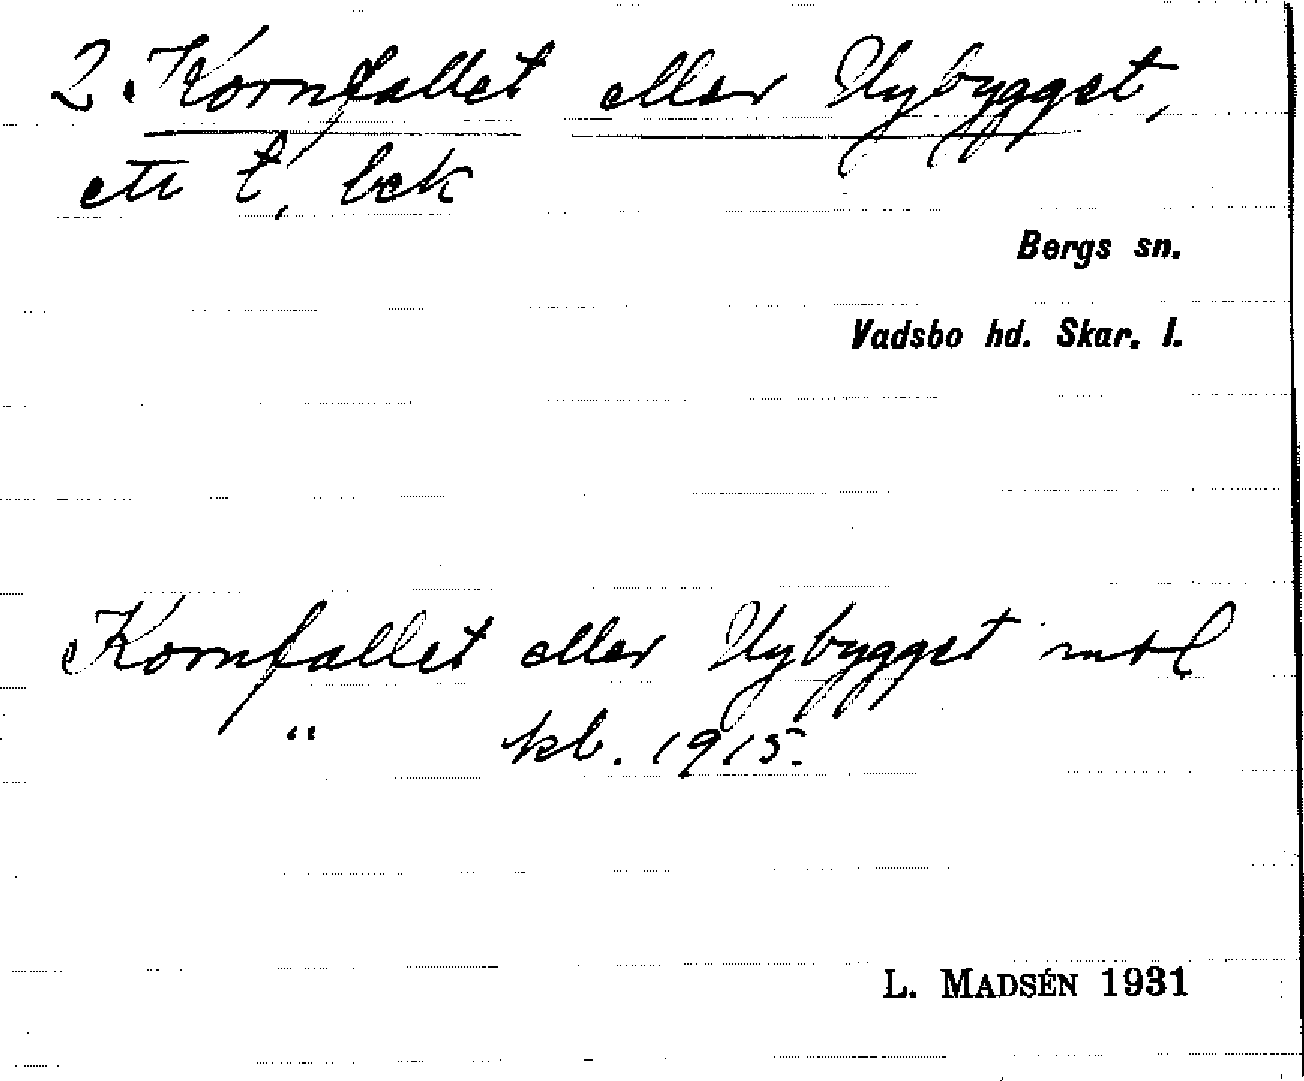 2. Kornfallet eller Nybygget,
ett t, bek
Bergs sn.
Vadsbo hd. Skar. l.
Kornfallet eller Nybygget mtl
" kb. 1915.
L. MADSÉN 1931